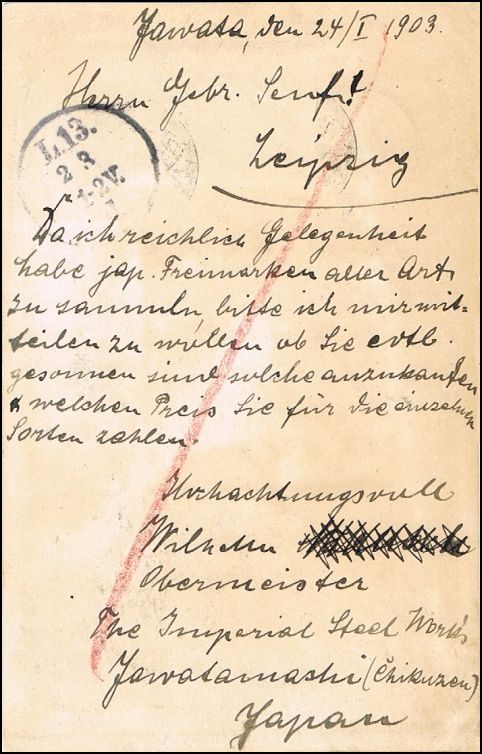 Jawata, den 24/I 1903.
Herrn Gebr. Senf!
Leipzig
L.13.
2 3
1-2V.
Da ich reichlich Gelegenheit
habe jap. Freimarken aller Art
zu sammeln, bitte ich mir mit-
teilen zu wollen ob Sie evtl.
gesonnen sind solche anzukaufen
& welchen Preis Sie für die einzelnen
Sorten zahlen.
Hochachtungsvoll
Wilhelm
Obermeister
The Imperial Steel Work's
Jawatamashi (Chikuzen)
Japan